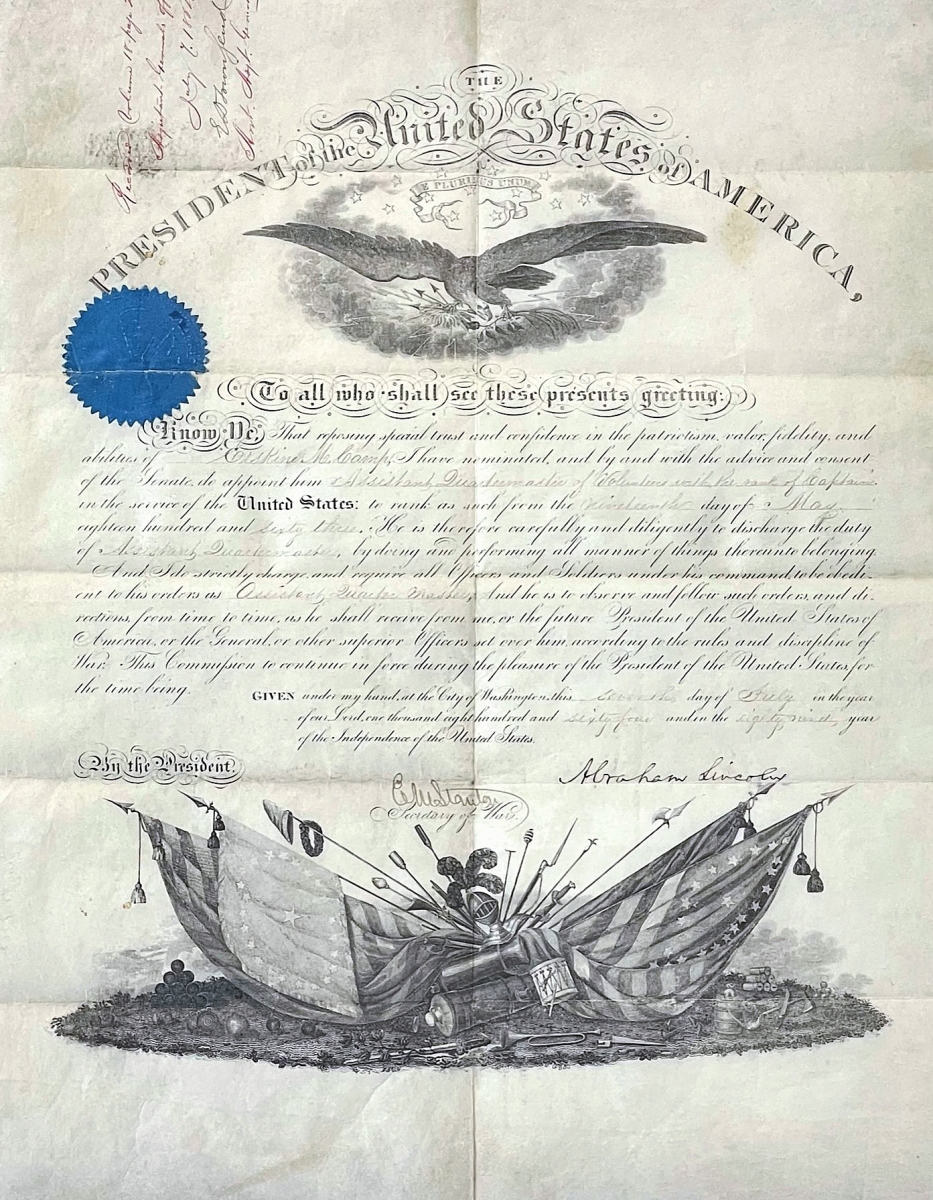 Recorded Volume 18 page
Adjutant General's
July 7. 1864
E D Townsend
Asst. Adjt. General
THE
PRESIDENT of the United States of AMERICA,
E PLURIBUS UNUM
To all who shall see these presents greeting:
Know Ye, That reposing special trust and confidence in the patriotism, valor, fidelity, and
abilities of Erskine M. Camp, I have nominated, and by and with the advice and consent
of the Senate, do appoint him Assistant Quartermaster of Volunteers with the rank of Captain
in the service of the United States: to rank as such from the nineteenth day of May
eighteen hundred and sixty three. He is therefore carefully and diligently to discharge the duty
of Assistant Quartermaster, by doing and performing all manner of things thereunto belonging.
And I do strictly charge, and require all Officers and Soldiers under his command to be obedi-
ent to his orders as Assistant Quarter Master. And he is to observe and follow such orders, and di-
rections, from time to time, as he shall receive from me, or the future President of the United States of
America, or the General, or other superior Officers set over him, according to the rules and discipline of
War. This Commission to continue in force during the pleasure of the President of the United States, for
the time being.
GIVEN under my hand, at the City of Washington, this seventh day of July in the year
of our Lord, one thousand eight hundred and sixty four and in the eighty ninth year
of the Independence of the United States.
By the President.
Abraham Lincoln
E M Stanton
Secretary of War.